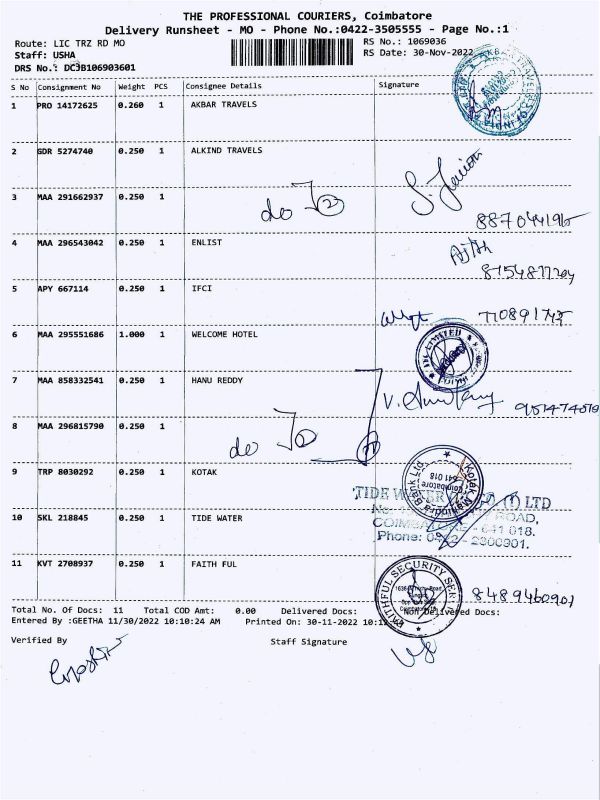 THE PROFESSIONAL COURIERS, Coimbatore
Delivery Runsheet - MO - Phone No.:0422-3505555 - Page No.:1
Route: LIC TRZ RD MO RS No.: 1069036
Staff: USHA RS Date: 30-Nov-2022
DRS No.: DCJB106903601
S No Consignment No Weight PCS Consignee Details Signature
1 PRO 14172625 0.260 1 AKBAR TRAVELS
2 GDR 5274740 0.250 1 ALKIND TRAVELS
3 MAA 291662937 0.250 1 do
4 MAA 296543042 0.250 1 ENLIST
5 APY 667114 0.250 1 IFCI
6 MAA 295551686 1.000 1 WELCOME HOTEL
7 MAA 858332541 0.250 1 HANU REDDY
8 MAA 296815790 0.250 1 do
9 TRP 8030292 0.250 1 KOTAK
Kotak Mahindra Bank Ltd
Coimbatore 641 018
TIDE WATER (I) LTD
10 SKL 218845 0.250 1 TIDE WATER
ROAD,
641 018.
Phone: 2300901.
11 KVT 2708937 0.250 1 FAITH FUL
FAITHFUL SECURITY SER
8489460907
Total No. Of Docs: 11 Total COD Amt: 0.00 Delivered Docs: Non Delivered Docs:
Entered By :GEETHA 11/30/2022 10:10:24 AM Printed On: 30-11-2022 10:12
Verified By Staff Signature